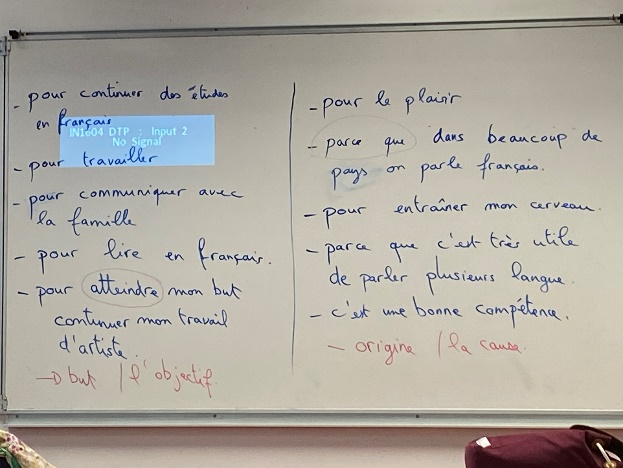 - pour continuer des études
en français
IN1604 DTP : Input 2
No Signal
- pour travailler
- pour communiquer avec
la famille
- pour lire en français.
- pour atteindre mon but
continuer mon travail
d'artiste.
→ but / l'objectif
- pour le plaisir
- parce que dans beaucoup de
pays on parle français.
- pour entraîner mon cerveau.
- parce que c'est très utile
de parler plusieurs langue.
- c'est une bonne compétence.
- origine / la cause.